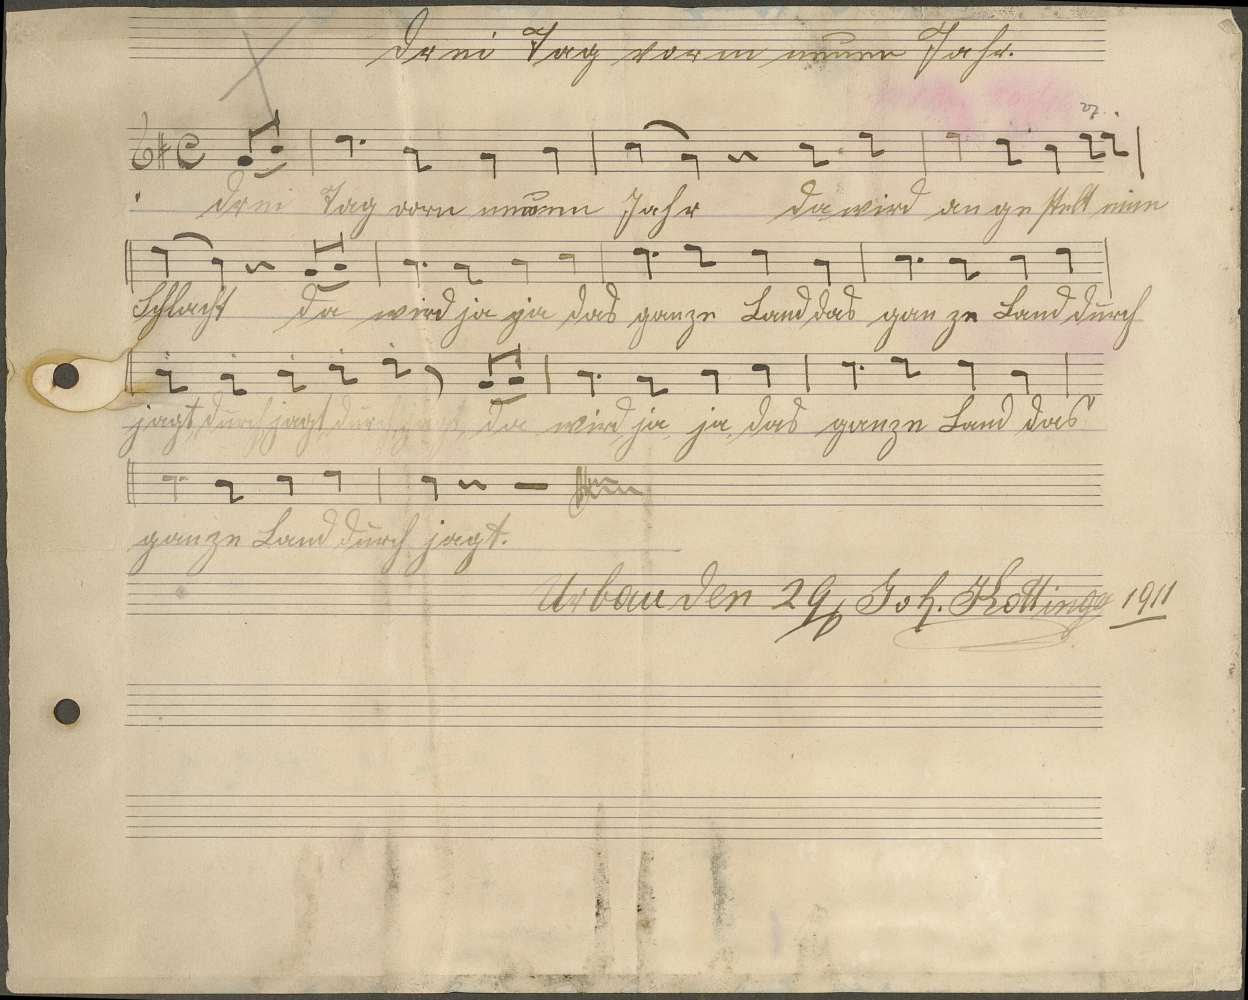 Drei Tag vorm neuen Jahr.
Drei Tag vorm neuen Jahr da wird an ge stellt eine
Schlacht da wird ja ja das ganze Land das gan ze Land durch
jagt, durch jagt durch jagt, da wird ja, ja, das ganze Land das
ganze Land durch jagt.
Urbau den 29 Joh. 1911